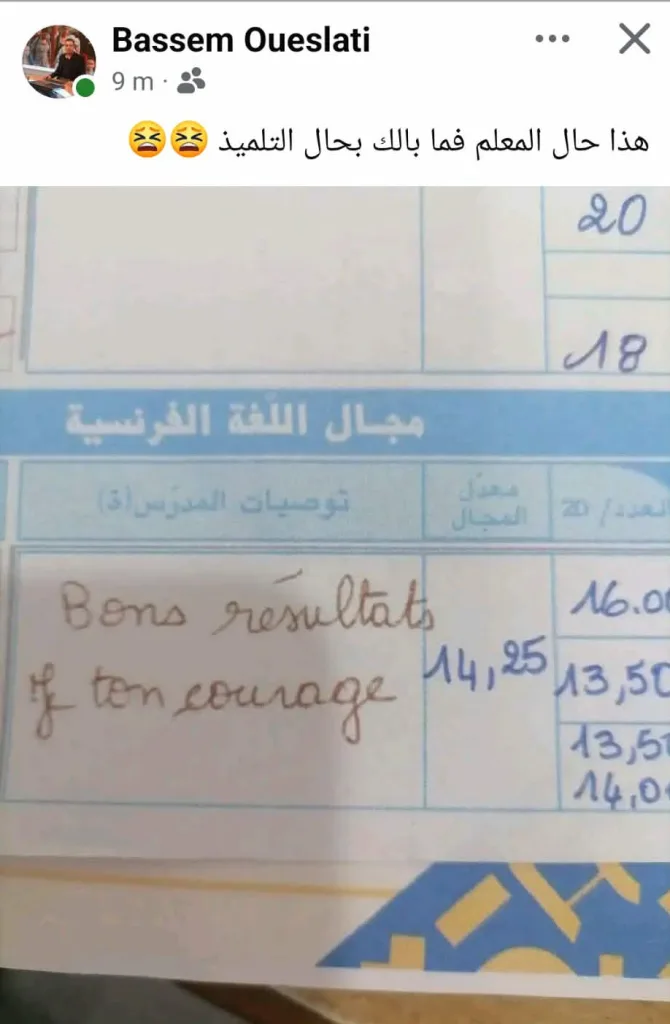 Bassem Oueslati
9 m
هذا حال المعلم فما بالك بحال التلميذ 😫😫
20
18
مجـال اللّغة الفرنسية
توصيات المدرّس(ة)
معدّل
المجال
العدد/ 20
Bons résultats
ton courage
14,25
16.00
13,50
13,5
14,0